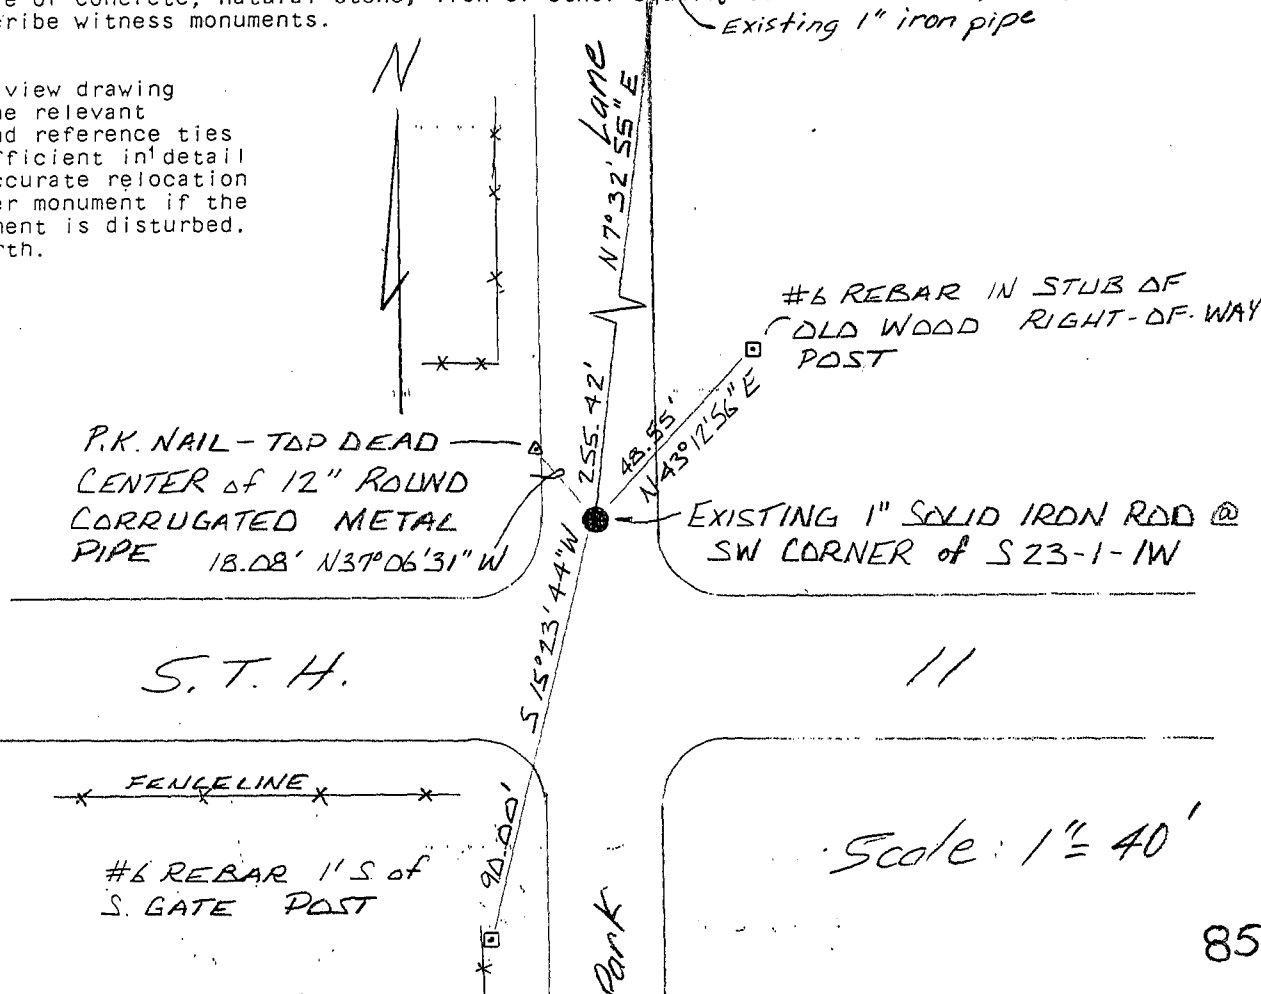 e of concrete, natural stone, iron or other
cribe witness monuments.
Existing 1" iron pipe
N
view drawing
ne relevant
nd reference ties
fficient in detail
ccurate relocation
er monument if the
ment is disturbed.
rth.
Lane
N 7° 32' 55" E
255.42'
#6 REBAR IN STUB OF
OLD WOOD RIGHT-OF-WAY
POST
48.55'
N 43° 12' 56" E
P.K. NAIL - TOP DEAD
CENTER of 12" ROUND
CORRUGATED METAL
PIPE 18.08' N37°06'31" W
EXISTING 1" SOLID IRON ROD @
SW CORNER of S 23-1-1W
S 15° 23' 44" W
90.00'
S.T.H. 11
FENCELINE
#6 REBAR 1' S of
S. GATE POST
Park
Scale: 1" = 40'
85